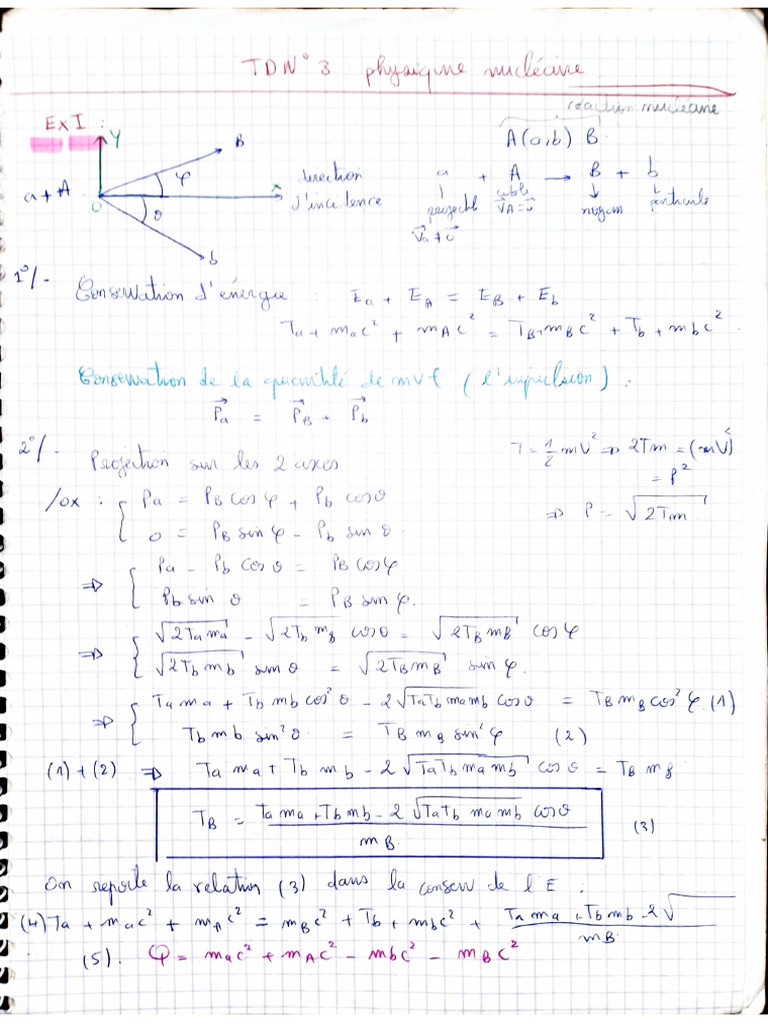 TDN° 3 physique nucléaire
réaction nucléaire
Ex I :
A(a,b) B
Y
B
φ
a + A
0
x
θ
b
direction
d'incidence
a + A → B + b
projectil cible noyau particule
V⃗A = 0⃗
V⃗a ≠ 0⃗
1°/- Conservation d'énergie : Ea + EA = EB + Eb
Ta + mac² + mAc² = TB + mBc² + Tb + mbc².
Conservation de la quantité de mvt (l'impulsion) :
P⃗a = P⃗B + P⃗b
2°/- Projection sur les 2 axes
T = 1/2 mV² ⇒ 2Tm = (mV)²
= P²
⇒ P = √2Tm
/ox : { Pa = PB cos φ + Pb cos θ
0 = PB sin φ - Pb sin θ.
⇒ { Pa - Pb cos θ = PB cos φ
Pb sin θ = PB sin φ.
⇒ { √2Tama - √2Tbmb cos θ = √2TBmB cos φ
√2Tbmb sin θ = √2TBmB sin φ.
⇒ { Tama + Tbmb cos² θ - 2√TaTbmamb cos θ = TBmB cos² φ. (1)
Tbmb sin² θ. = TBmB sin² φ (2)
(1)+(2) ⇒ Tama + Tbmb - 2√TaTbmamb cos θ = TBmB
TB = Tama + Tbmb - 2√TaTbmamb cos θ / mB (3)
On reporte la relation (3) dans la conserv de l'E :
(4) Ta + mac² + mAc² = mBc² + Tb + mbc² + Tama + Tbmb - 2√ / mB.
(5). Q = mac² + mAc² - mbc² - mBc²